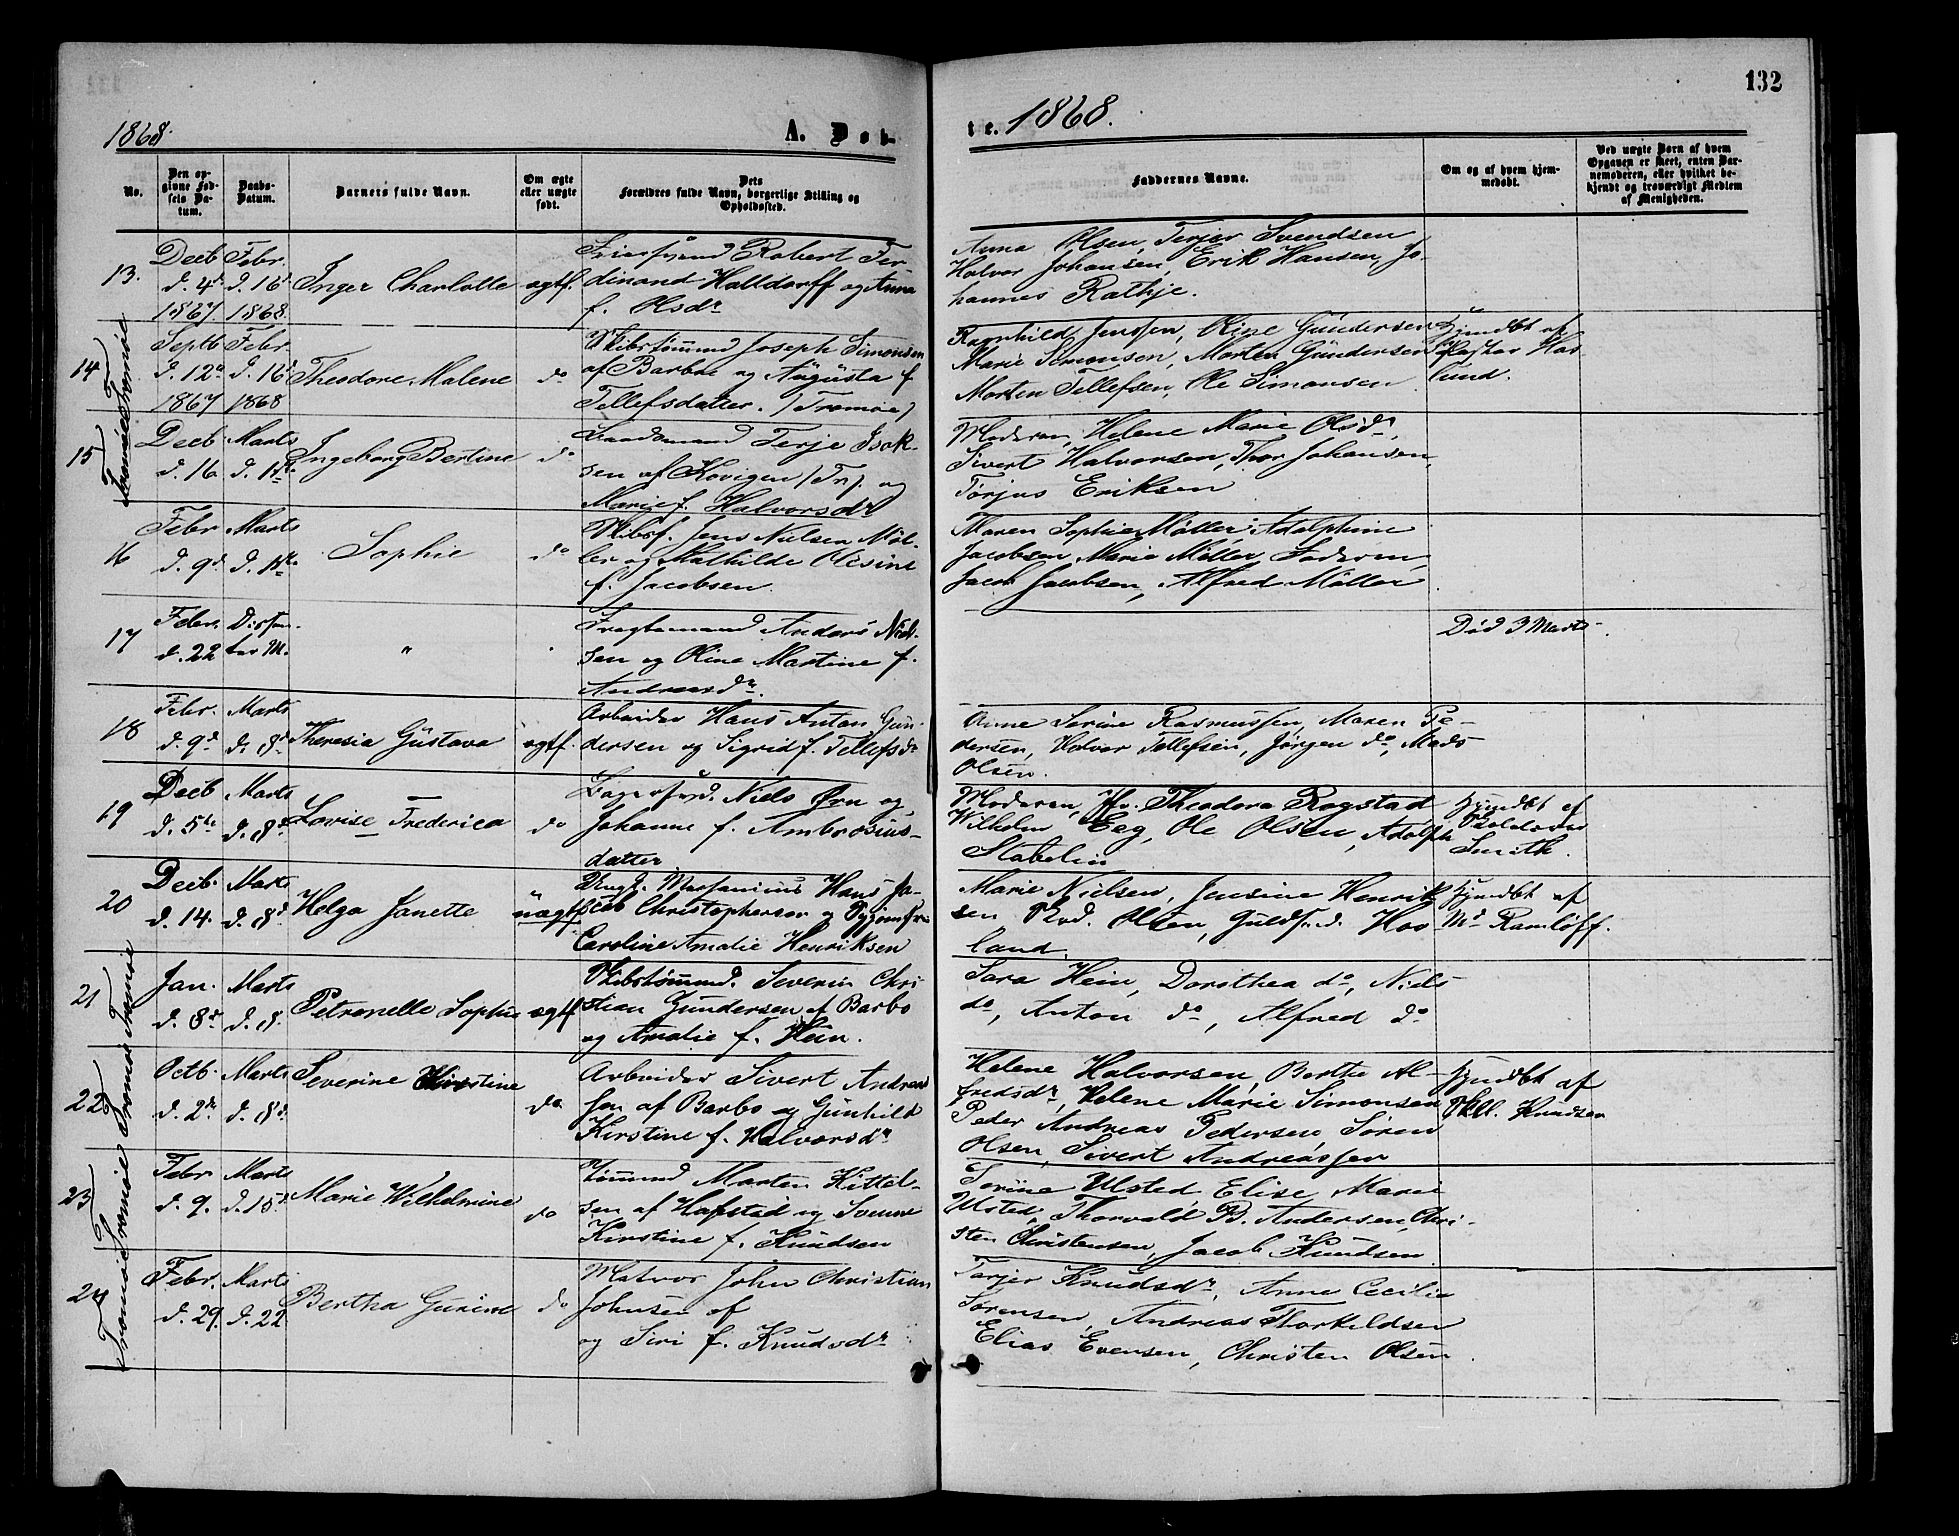 132
1868.
A. Døb-
te. 1868.
No.
Den op-
givne Fød-
sels Da-
tum.
Daabs-
Datum.
Barnets fulde Navn.
Om ægte
eller uægte
født.
Dets
Forældres fulde Navn, borgerlige Stilling og
Opholdssted.
Faddernes Navne.
Om og af hvem hjem-
medøbt.
Ved uægte Børn af hvem
Opgaven er skeet, enten Bar-
nemoderen, eller hvilket be-
kjendt og troværdigt Medlem
af Menigheden.
13.
Decb. d. 4d 1867.
Febr. d. 16d 1868.
Inger Charlotte
ægtf.
Robert Fer-
dinand Halldorff og Anna
f. Olsdr
Anna Olsen, Terjer Svendsen
Halvor Johansen, Erik Hansen, Jo-
hannes Rathje.
Tromøe
14
Septb d. 12d 1867
Febr. d. 16d 1868
Theodore Malene
do
Skibstømmd Joseph Simonsen
af Barboe og Augusta f.
Tellefsdatter. (Tromøe)
Ragnhild Jenssen, Oline Gundersen
Marie Simonsen, Morten Gundersen
Morten Tellefsen, Ole Simonsen
Hjmdbt af
Pastor Has-
lund.
Tromøe
15
Decb d. 16
Marts d. 1ste
Ingeborg Bertine
do
Baadsmand Terje Isak-
sen af Kovigen (Tr). og
Marie f. Halvorsdr
Moderen, Helene Marie Olsdr,
Sivert Halvorsen, Thor Johansen,
Torjus Eriksen
16
Febr d. 9d
Marts d. 1ste
Sophie
do
Skibsf. Jens Nielsen Møl-
ler og Mathilde Olesine
f. Jacobsen.
Maren Sophie Møller, Adolphine
Jacobsen, Marie Møller, Faderen,
Jacob Jacobsen, Alfred Møller
17
Febr. d. 22
Dissen-
ter M.
"
Fragtemand Anders Niel-
sen og Oline Martine f.
Andreasdr.
Død 3 Marts.
18
Febr. d. 9d
Marts d. 8d
Theresia Gustava
ægtf.
Arbeider Hans Anton Gun-
dersen og Sigrid f. Tellefsdr
Anne Serine Rasmussen, Maren Pe-
dersen, Halvor Tellefsen, Jørgen do, Mads
Olsen.
19
Decb d. 5te
Marts d. 8d
Lovise Frederica
do
Bagersvend. Niels Ørn og
Johanne f. Ambrosius-
datter
Moderen, Jfr. Theodora Rogstad
Wilhelm Eeg, Ole Olsen, Adolph
Stabelin
Hjmdbt af
Smith.
20
Decb. d. 14.
Marts d. 8d
Helga Janette
uægtf
Ungk. Hans Ja-
cob Christophersen og
Caroline Amalie Henriksen
Marie Nielsen, Jensine Henrik-
sen Olsen, Guldsd. Hov-
land.
Hjmdbt af
Md Ramløff.
Tromøe
21
Jan. d. 8d
Marts d. 8.
Petronelle Sophie
ægtf
Skibstømmd. Severin Chri-
stian Gundersen af Barbo
og Amalie f. Hein.
Sara Hein, Dorothea do, Niels
do, Anton do, Alfred do
Tromøe
22
Octb. d. 2d
Marts d. 8d
Severine Kirstine
do.
Arbeider Sivert Andreas-
sen af Barbo og Gunhild
Kirstine f. Halvorsdr
Helene Halvorsen, Berthe Al-
fredsdr, Helene Marie Simonsen
Peder Andreas Pedersen, Søren
Olsen, Sivert Andreassen
Hjmdbt af
Skll. Knudsen
Tromøe
23
Febr d. 9.
Marts d. 15d
Marie Wilhelmine
do
Tømmd Morten Kittel-
sen af Hafstad og
Kirstine f. Knudsen
Ulsted, Elise Marie
Ulsted, Thorvald B. Andersen, Chri-
sten Christensen, Jacob Knudsen
Tromøe
24
Febr. d. 29.
Marts d. 22
Bertha Gurine
do
Matros John Christian
Johnsen af
og Siri f. Knudsdr
Tarjer Knudsdr, Anne Cecilie
Sørensen, Andreas Thorkildsen
Elias Evensen, Christen Olsen.